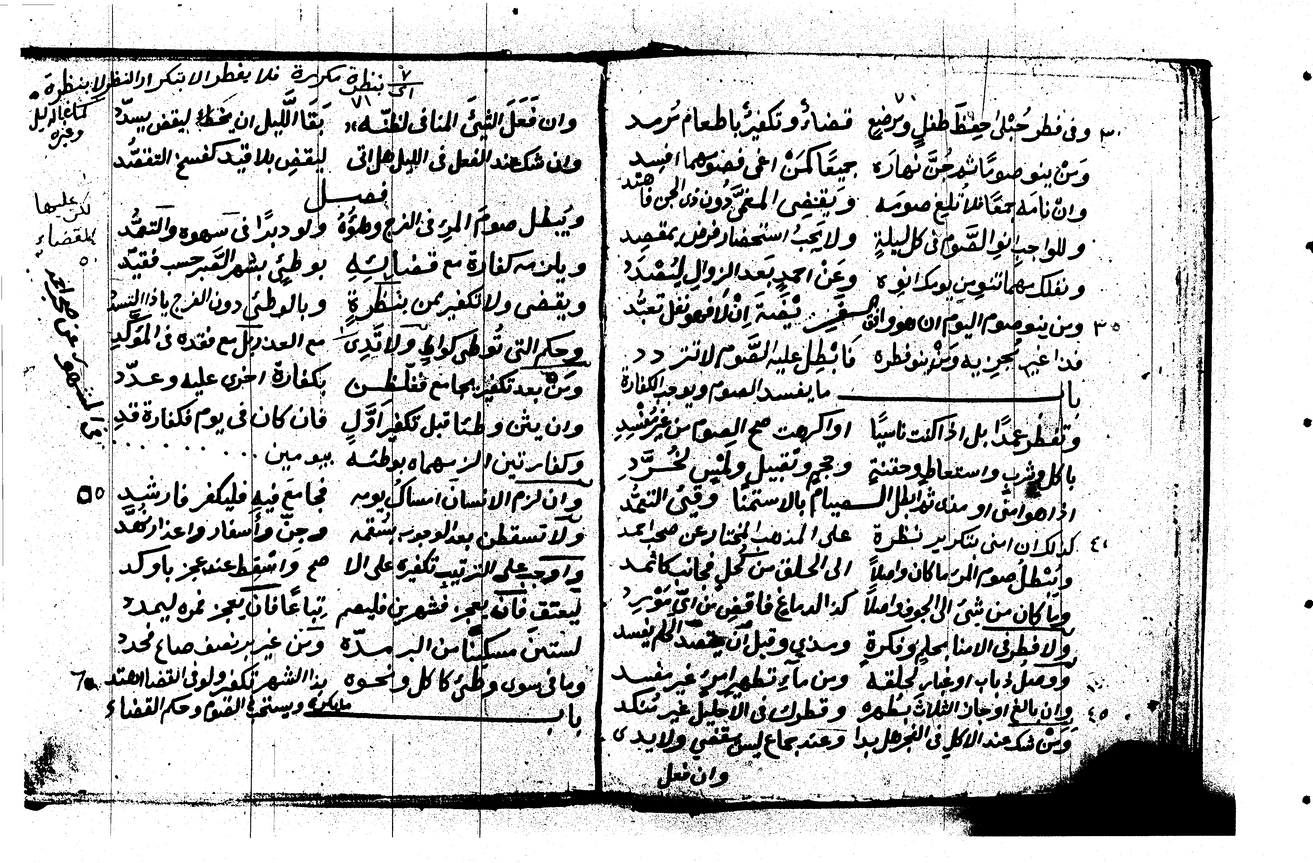 وفى فطر حُبْلى حِفظَ طفلٍ ومرضعٍ قضاءٌ وتكفيرٌ باطعام مُرمد
وَمَنْ ينو صومًا ثم جُنَّ نهاره جميعًا كمَنْ اغمى فصومهما افسِد
وانْ نامه جمعًا فلا تلغ صومه ويقضى المغمىَّ دون ذى الجن فاهتد
وللواجب انوِ الصَّوم فى كل ليلةٍ ولا يجبُ استحضار فرض بمقصد
ونفلك مهما تنو من يومك انوه وعَنْ احمدٍ بَعد الزوال ليُقصَد
ومن ينو صوم اليوم ان هو وافق نيَّة اِنْ لا فهو نفل تعبُّد
فذا غير مُجزيه ومَنْ ينو فطره فابْطِل عليه الصَّوم لا تتردد
باب ما يفسد الصوم ويوجب الكفارة
وتفطر عمدًا بل اذا كنت ناسيًا او اكرهت صح الصوم من غير مُفْسِدِ
باكل وشرب واستعاط وحقنةٍ وحجم وتقبيل ولمس لخُرَّدِ
اذا هو امنى او مذى ثم ابطل الصيام بالاستمنا وقيئ التعمُّد
كذلك ان امنى بتكرير نظرة على المذهب المختار عن صحب احمد
ويُبْطلُ صوم المرء ما كان واصلاً الى الحلق من كُحلٍ فجانب كاثمد
وما كان من شئ الى الجوف واصلاً كذا الدماغ فاقضِ من اىّ مَوْرد
ولا فطر فى الامنا بحلم وفكرةٍ ومذي وقبل ان يتعمد الحلم يفسد
ووصل ذباب او غبار لحلقه ومن مآء تطهير امرئ غير مفسد
وان بالغ او جاز الثلاث بطهره وقطرك فى الاحليل غير منكد
ومَنْ شك عند الاكل فى الفجر هل بدا وعند جماع ليس يقضي ولا يدى
وان فعل
بنظرة مكررة فلا يفطر الا بتكرار النظر لا بنظرة
وان فَعَلَ الشيئَ المنافى لظنّه بَقَا اللَّيل ان يخطئ ليقض يسدّد
وان شك عند الفعل فى الليل هل اتى ليقضِ بلا قيد كفسخ التقصُّد
فصل
ويُبطل صومَ المرء فى الفرج وطؤُهُ ولو دبرًا فى سهوه والتعمُّد
ويلزمه كفارة مع قضائه بوطئٍ بشهر الصَّبر حسب فقيّد
ويقضى ولا تكفير بمن بنَظرةٍ وبالوطئ دون الفرج ياذا التسدد
وحكم التى تُوطى كواطٍ ولا تَدِى مع العذر بل مع فقده فى المؤكَّدِ
ومَن بعد تكفير يجامع فغلِّظن بكفارة اخرى عليه وعدّد
وان يثن وطئا قبل تكفير اوَّلٍ فان كان فى يوم فكفارة قدِ
وكفارتين الزمهما بوطئه بيومين
وان لزم الانسان امساك يومه فجامَعَ فيه فليكفر فارشد
ولا تسقطن بعد الوجوب بسُقمه وجنّ واسفار واعذار
واوجب على الترتيب تكفيره على الا صح واسقِط عند عجز باوكد
ليعتق فان يعجز فشهرين فليصم تباعًا فان يعجز
لستين مسكينًا من البر مدّه ومن غير بر نصف صاع فحدد
وما فى سوى وطئ كاكل ونحوه بذا الشهر تكفير ولو فى القضا اهتد
باب ما يكره ويستحب فى الصوم وحكم القضاء
لكن عليها
القضاء